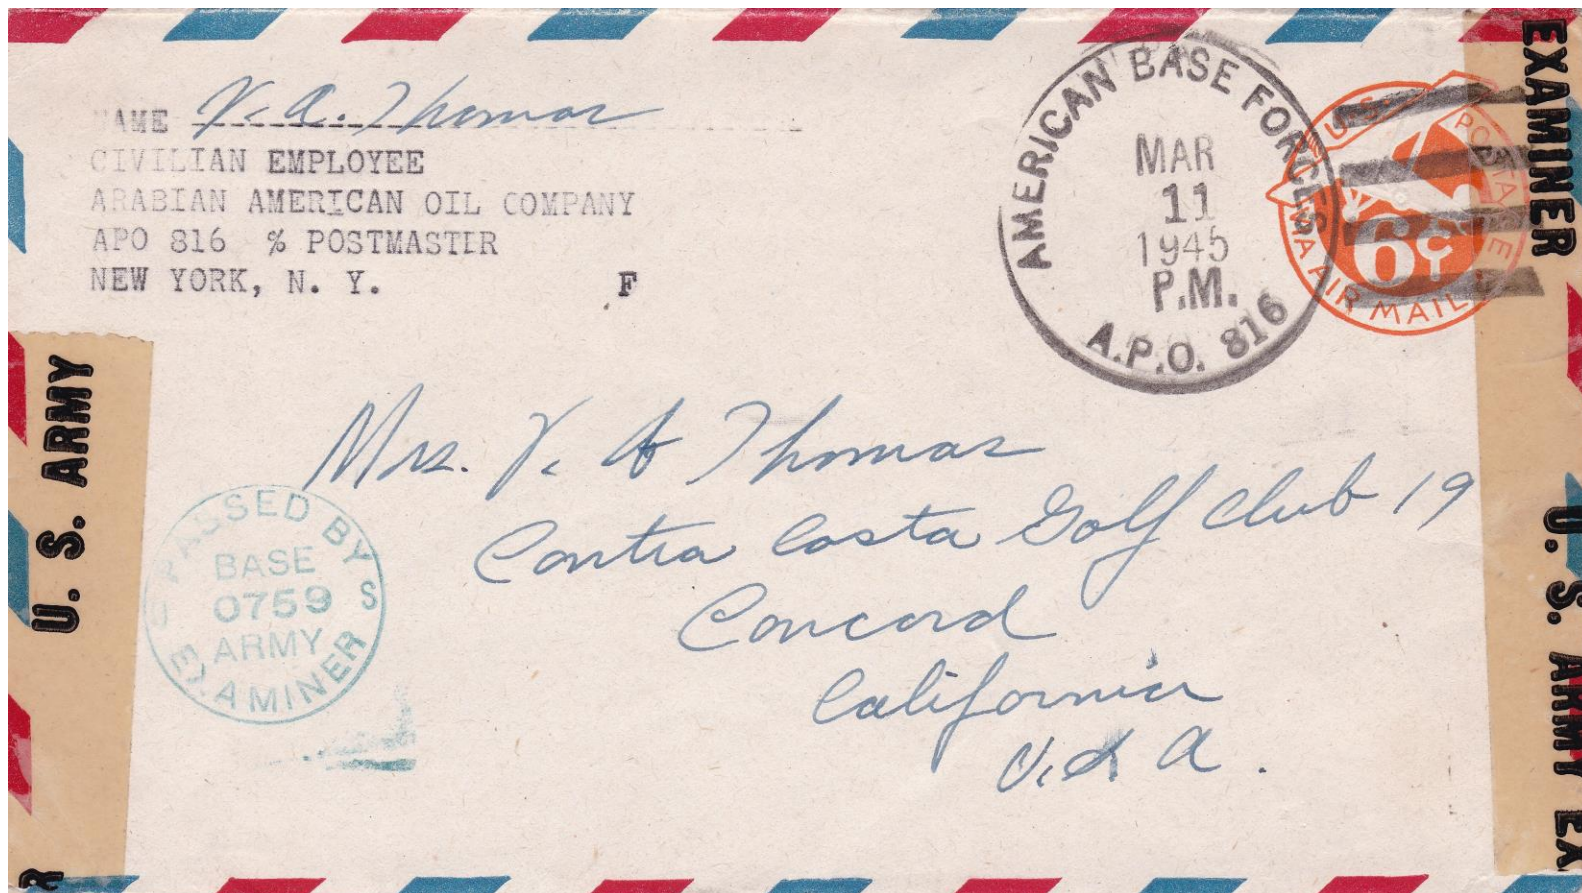 NAME V. A. Thomas
CIVILIAN EMPLOYEE
ARABIAN AMERICAN OIL COMPANY
APO 816 % POSTMASTER
NEW YORK, N. Y. F
AMERICAN BASE FORCES
MAR
11
1945
P.M.
A.P.O. 816
U.S. POSTAGE
6¢
VIA AIR MAIL
EXAMINER
U. S. ARMY EX
U. S. ARMY
R
PASSED BY
BASE
0759
ARMY
U S
EXAMINER
Mrs. V. A Thomas
Contra Costa Golf Club 19
Concord
California
U. S A.